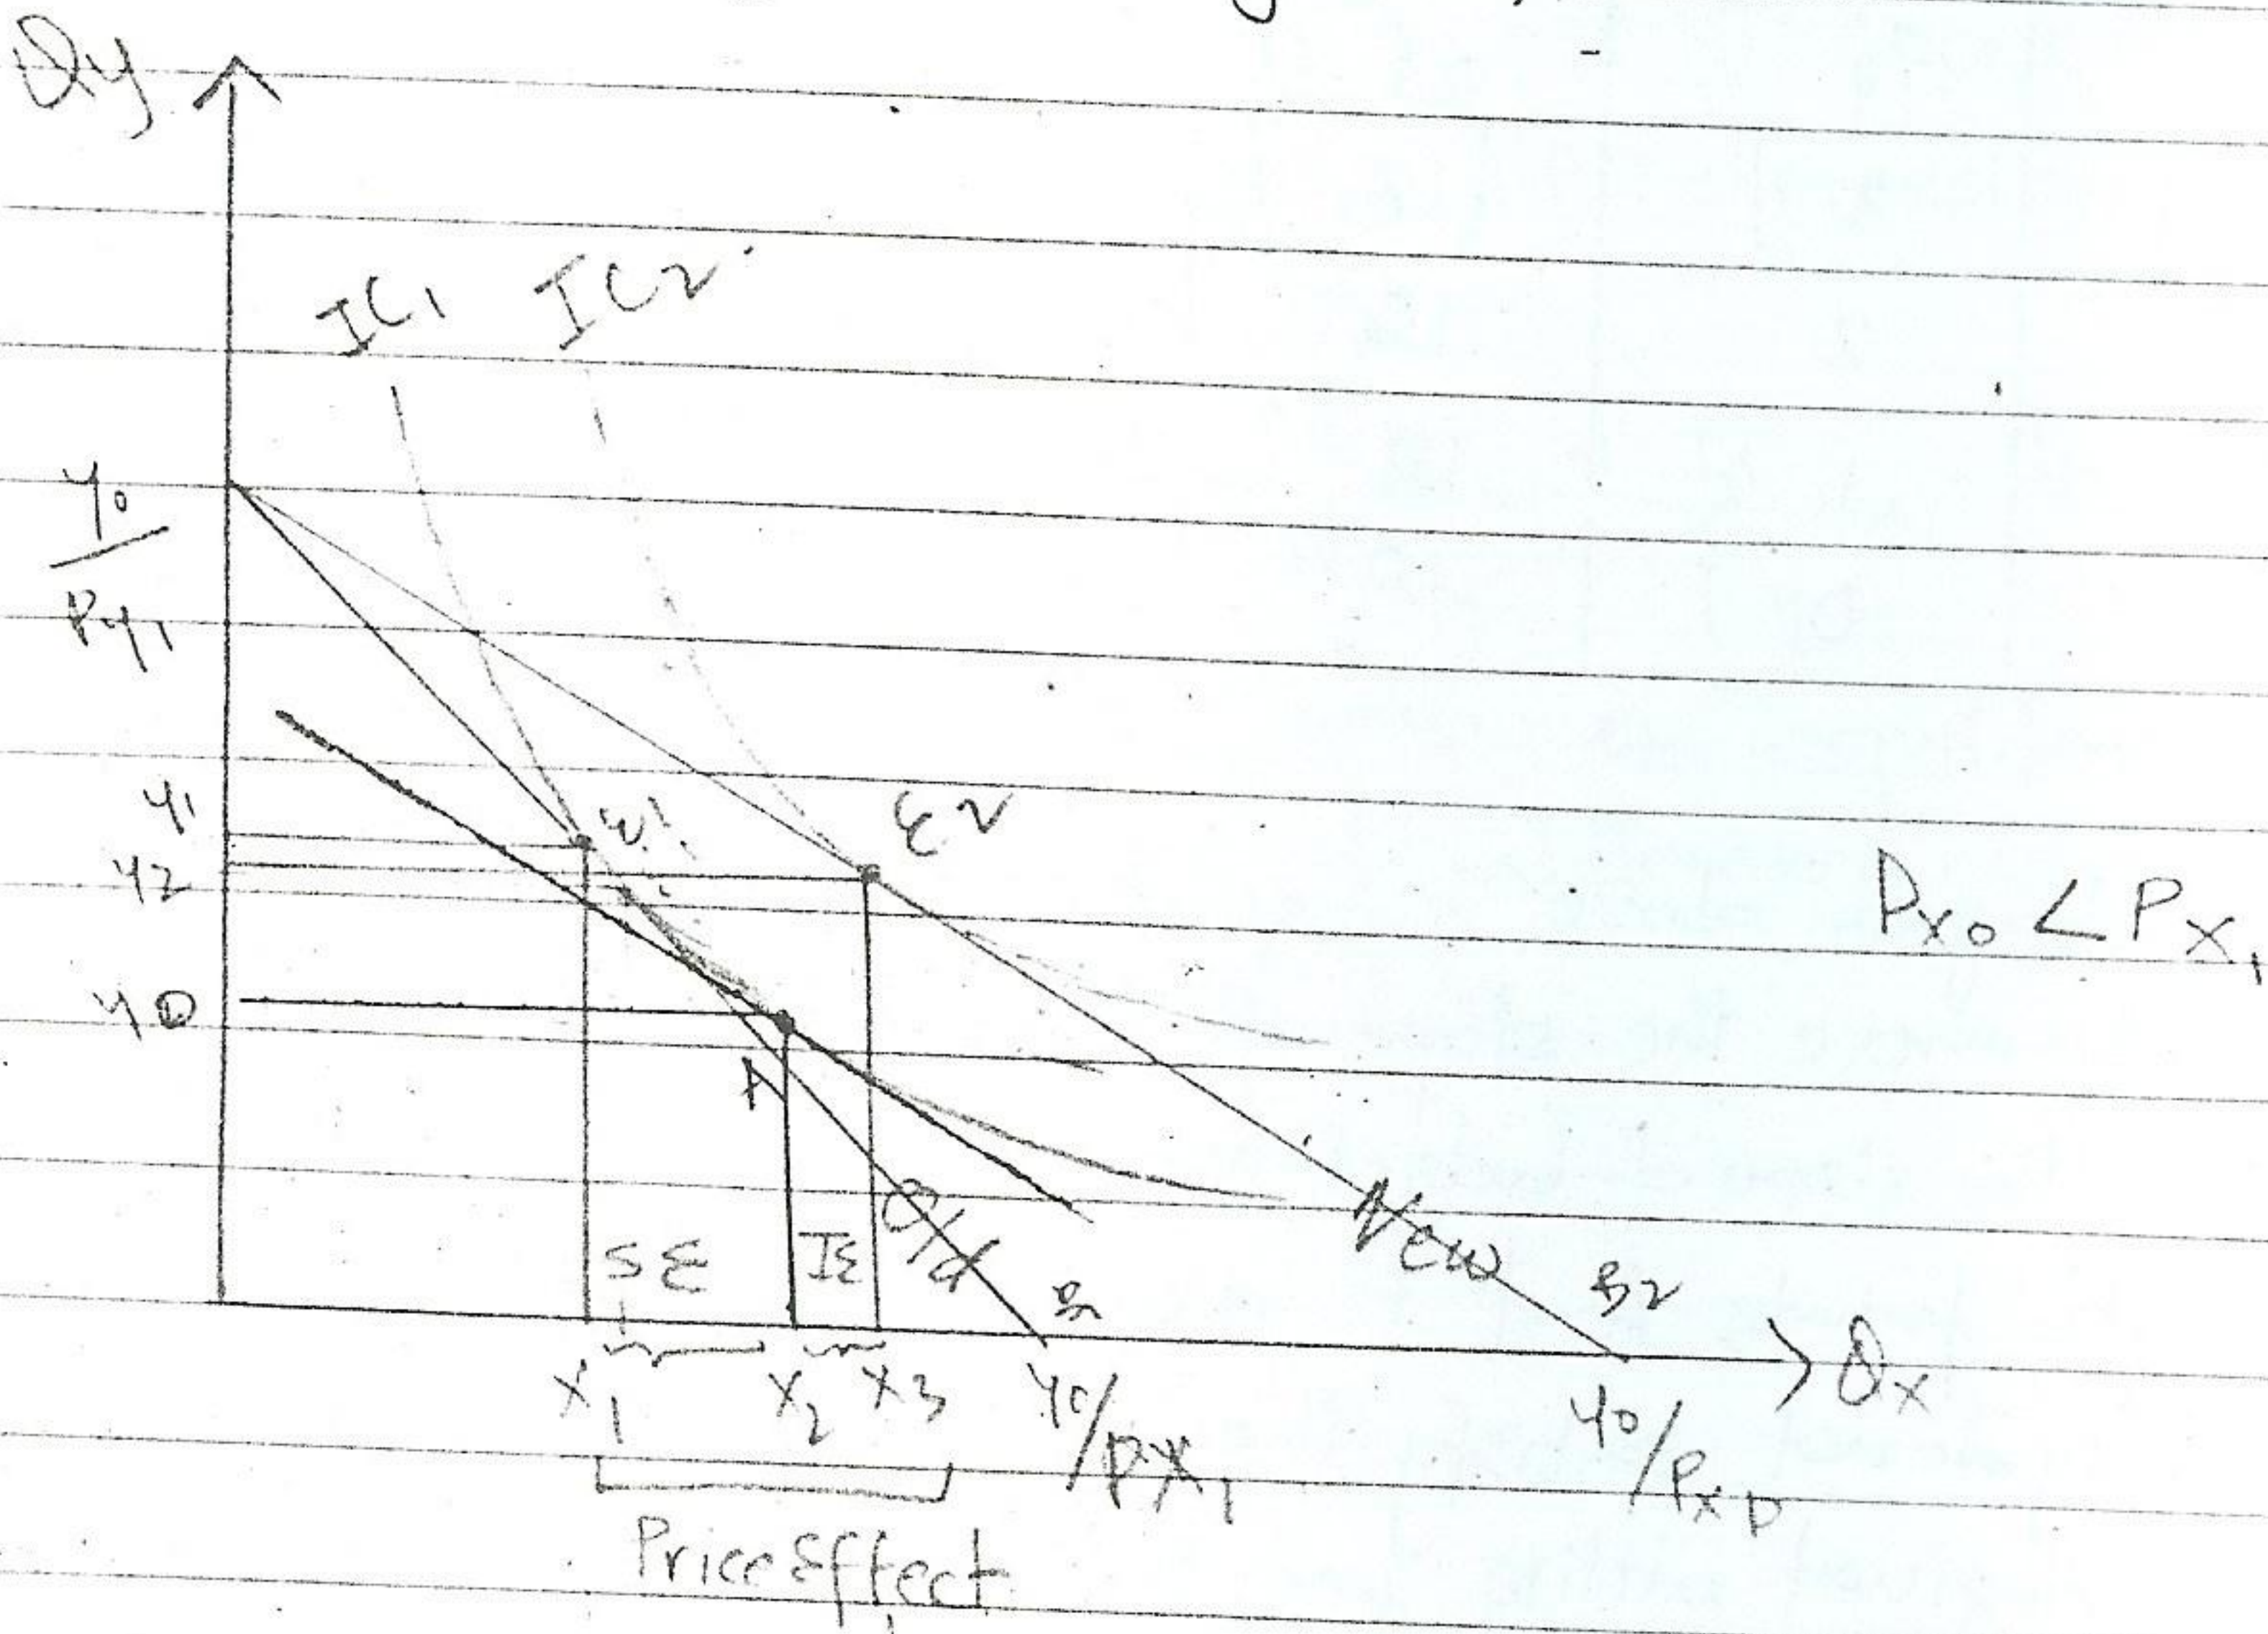 Qy
IC1 IC2
Y0
Py1
Y1
E1 E2
Y2
Px0 < Px1
Y0
A
SE IE Old B1 New B2
X1 X2 X3 Y0/Px1 Y0/Px0 Qx
Price Effect